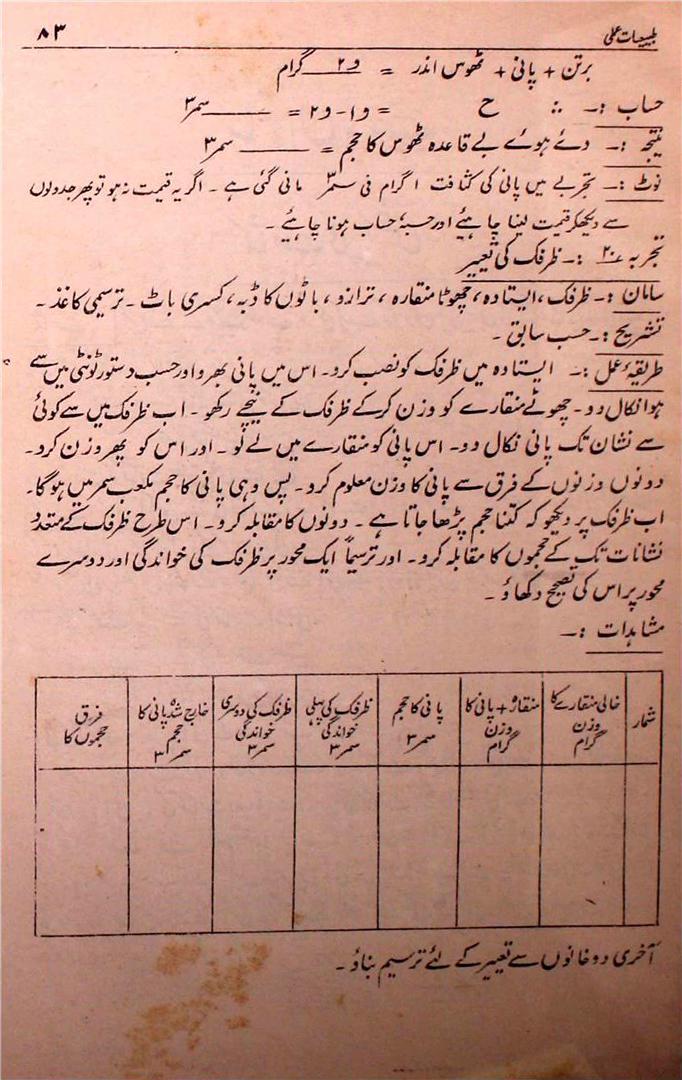 طبیعیات عملی
۸۳
برتن + پانی + ٹھوس اندر = و۲ گرام
حساب :- ∴ ح = و۱ - و۲ = ——— سمر۳
نتیجہ :- دئے ہوئے بے قاعدہ ٹھوس کا حجم = ——— سمر۳
نوٹ :- تجربے میں پانی کی کثافت ۱ گرام فی سمر۳ مانی گئی ہے ۔ اگر یہ قیمت نہ ہو تو پھر جدولوں
سے دیکھکر قیمت لینا چاہئیے اور حسبہٗ حساب ہونا چاہئیے ۔
تجربہ ۲۰ :- ظرفک کی تعییر
سامان :- ظرفک ، ایستادہ ، چھوٹا منقارہ ، ترازو ، باٹوں کا ڈبہ ، کسری باٹ ۔ ترسیمی کاغذ ۔
تشریح :- حسب سابق ۔
طریقۂ عمل :- ایستادہ میں ظرفک کو نصب کرو۔ اس میں پانی بھرو اور حسب دستور ٹونٹی میں سے
ہوا نکال دو ۔ چھوٹے منقارے کو وزن کرکے ظرفک کے نیچے رکھو ۔ اب ظرفک میں سے کوئی
سے نشان تک پانی نکال دو۔ اس پانی کو منقارے میں لے لو ۔ اور اس کو پھر وزن کرو۔
دونوں وزنوں کے فرق سے پانی کا وزن معلوم کرو۔ پس وہی پانی کا حجم مکعب سمر میں ہوگا۔
اب ظرفک پر دیکھو کہ کتنا حجم پڑھا جاتا ہے ۔ دونوں کا مقابلہ کرو۔ اس طرح ظرفک کے متعدد
نشانات تک کے حجموں کا مقابلہ کرو۔ اور ترسیماً ایک محور پر ظرفک کی خواندگی اور دوسرے
محور پر اس کی تصحیح دکھاؤ ۔
مشاہدات :-
شمار
خالی منقارے کا
وزن
گرام
منقارہ + پانی کا
وزن
گرام
پانی کا حجم
سمر۳
ظرفک کی پہلی
خواندگی
سمر۳
ظرفک کی دوسری
خواندگی
سمر۳
خارج شدہ پانی کا
حجم
سمر۳
فرق
حجموں کا
آخری دو خانوں سے تعییر کے لئے ترسیم بناؤ ۔